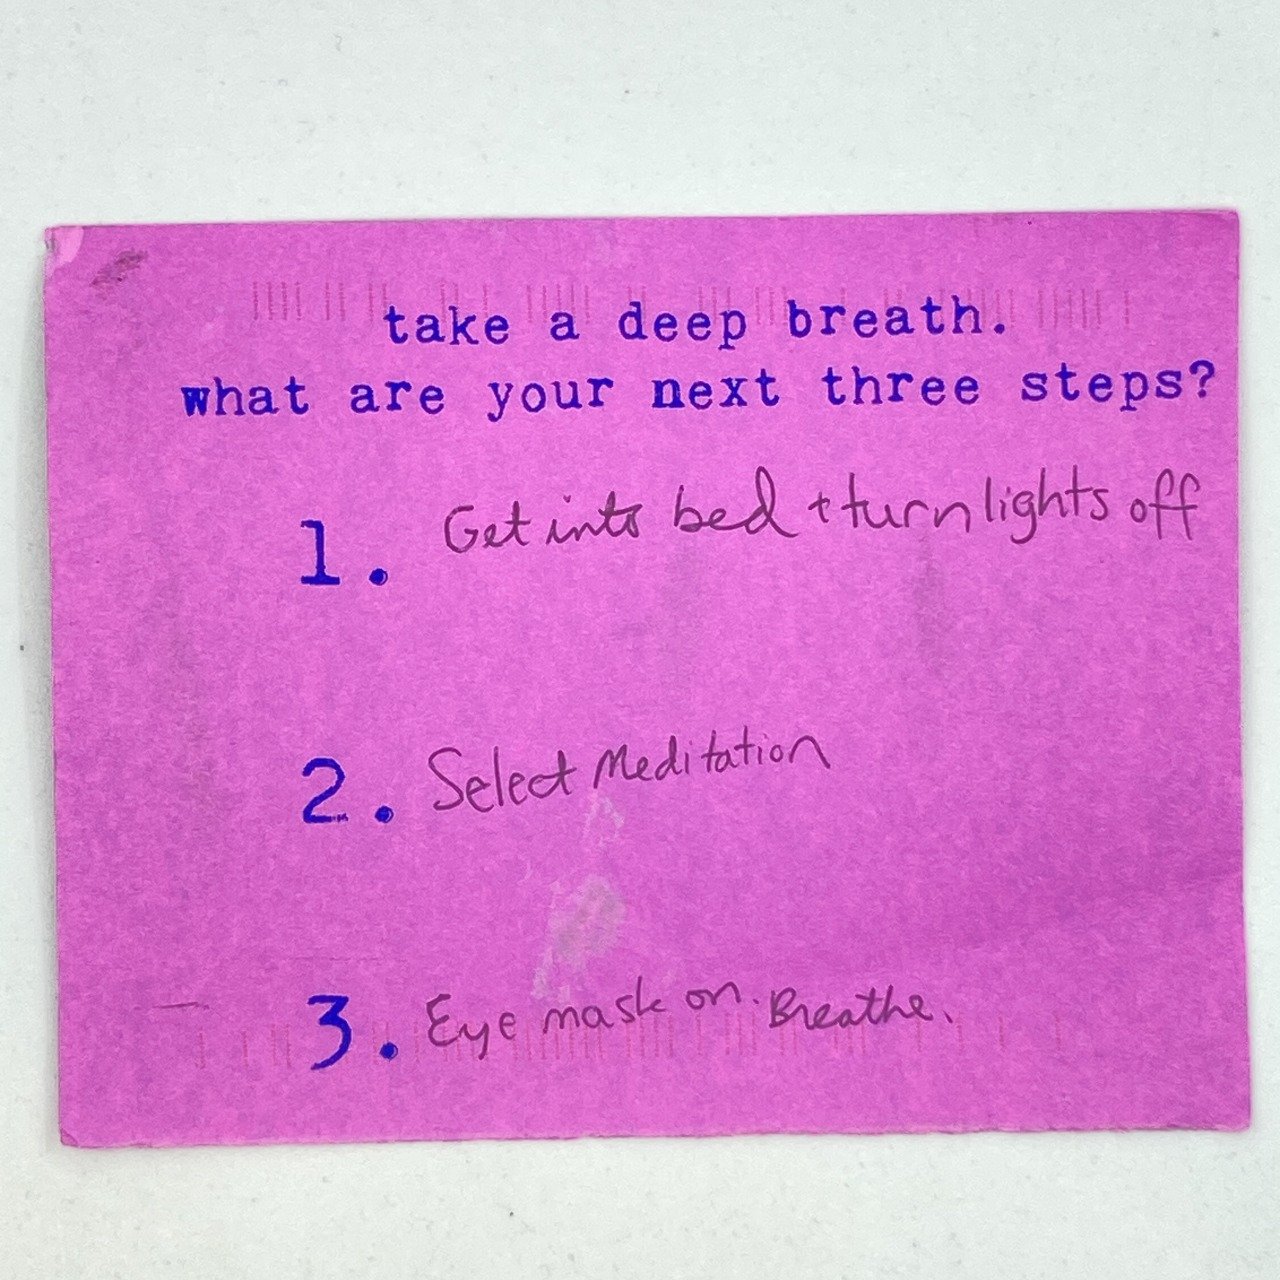 take a deep breath.
what are your next three steps?
1. Get into bed + turn lights off
2. Select Meditation
3. Eye mask on. Breathe.